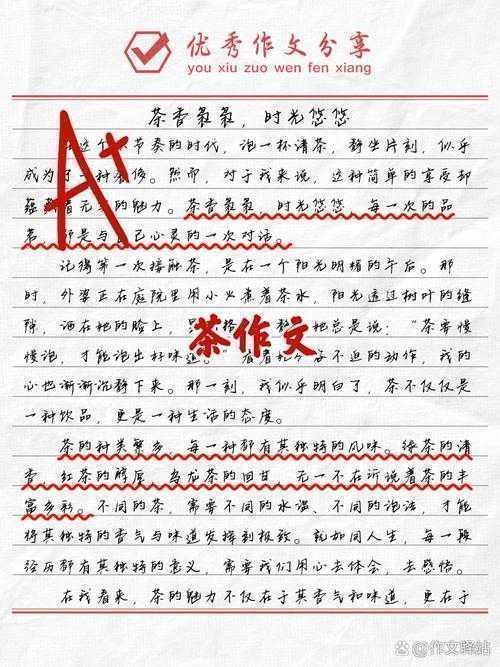 优秀作文分享
you xiu zuo wen fen xiang
茶香袅袅，时光悠悠
A+
这个 节奏的时代，泡一杯清茶，静坐片刻，似乎
成为了一种奢侈。然而，对于我来说，这种简单的享受却
蕴 着无 的魅力。茶香袅袅，时光悠悠，每一次的品
茗， 是与自己心灵的一次对话。
记得第一次接触茶，是在一个阳光明媚的午后。那
时，外婆正在庭院里用小火煮着茶水，阳光透过树叶的缝
隙，洒在她的脸上， 她总是说：“茶要慢
慢泡，才能泡出好味道。”看着 不迫的动作，我的
茶作文
心也渐渐沉静下来。那一刻，我似乎明白了，茶不仅仅是
一种饮品，更是一种生活的态度。
茶的种类繁多，每一种都有其独特的风味。绿茶的清
香，红茶的醇厚，乌龙茶的回甘，无一不在诉说着茶的丰
富多彩。不同的茶，需要不同的水温、不同的泡法，才能
将其独特的香气与味道发挥到极致。就如同人生，每一段
经历都有其独特的意义，需要我们用心去体会，去感悟。
在我看来，茶的魅力不仅在于其香气和味道，更在于
@作文驿站